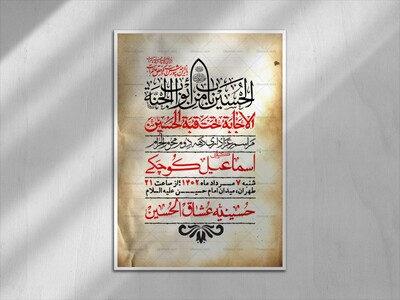 الحسین باب من ابواب الجنة
الاجابة تحت قبة الحسین
مراسم عزاداری دهه دوم محرم الحرام
اسماعیل کوچکے
شنبه ۷ مرداد ماه ۱۴۰۲ از ساعت ۲۱
طهران، میدان امام حسین علیه السلام
حسینیه عشاق الحسین